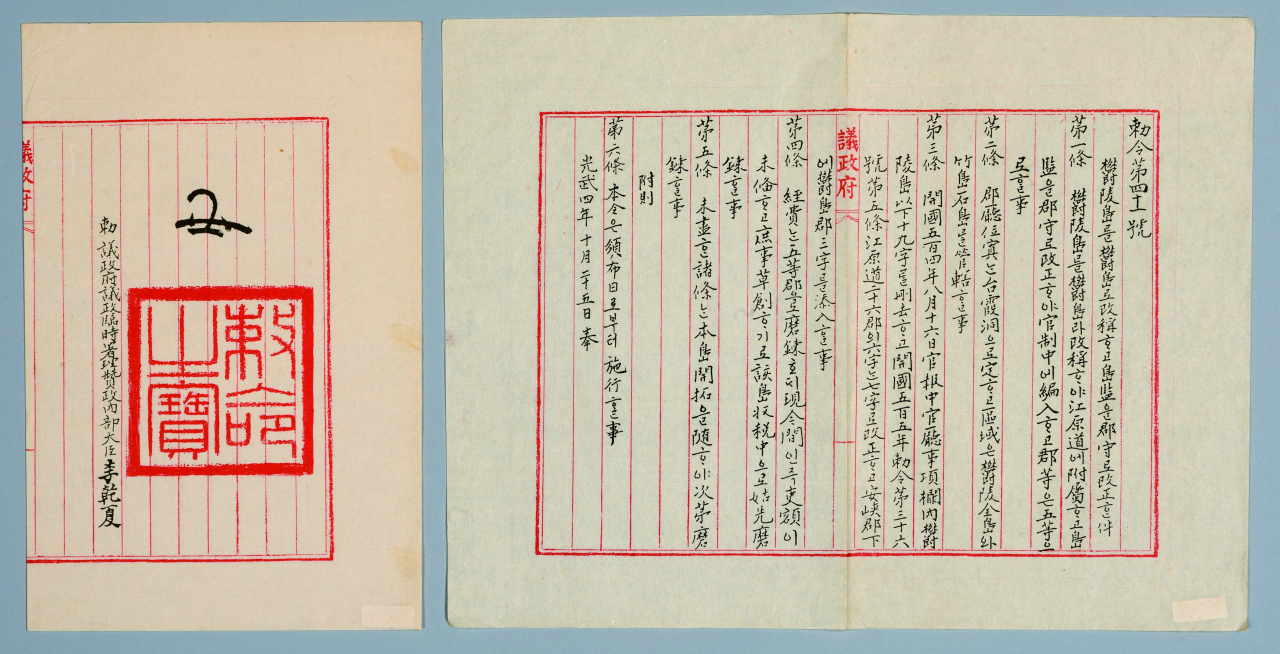 勅令第四十一號
欝陵島를欝島로改稱ᄒᆞ고島監을郡守로改正ᄒᆞᆫ件
第一條 欝陵島를欝島라改稱ᄒᆞ야江原道에附屬ᄒᆞ고島
監을郡守로改正ᄒᆞ야官制中에編入ᄒᆞ고郡等은五等으
로ᄒᆞᆯ事
第二條 郡廳位寘ᄂᆞᆫ台霞洞으로定ᄒᆞ고區域은欝陵全島와
竹島石島를管轄ᄒᆞᆯ事
第三條 開國五百四年八月十六日官報中官廳事項欄內欝
陵島以下十九字를刪去ᄒᆞ고開國五百五年勅令第三十六
號第五條江原道二十六郡의六字ᄂᆞᆫ七字로改正ᄒᆞ고安峽郡下
議政府
에欝島郡三字를添入ᄒᆞᆯ事
第四條 經費ᄂᆞᆫ五等郡으로磨鍊호ᄃᆡ現今間인즉吏額이
未備ᄒᆞ고庶事草創ᄒᆞ기로該島收稅中으로姑先磨
鍊ᄒᆞᆯ事
第五條 未盡ᄒᆞᆫ諸條ᄂᆞᆫ本島開拓을隨ᄒᆞ야次第磨
鍊ᄒᆞᆯ事
附則
第六條 本令은頒布日로부터施行ᄒᆞᆯ事
光武四年十月二十五日奉
敕命之寶
勅 議政府議政臨時署理贊政內部大臣李乾夏
議政府